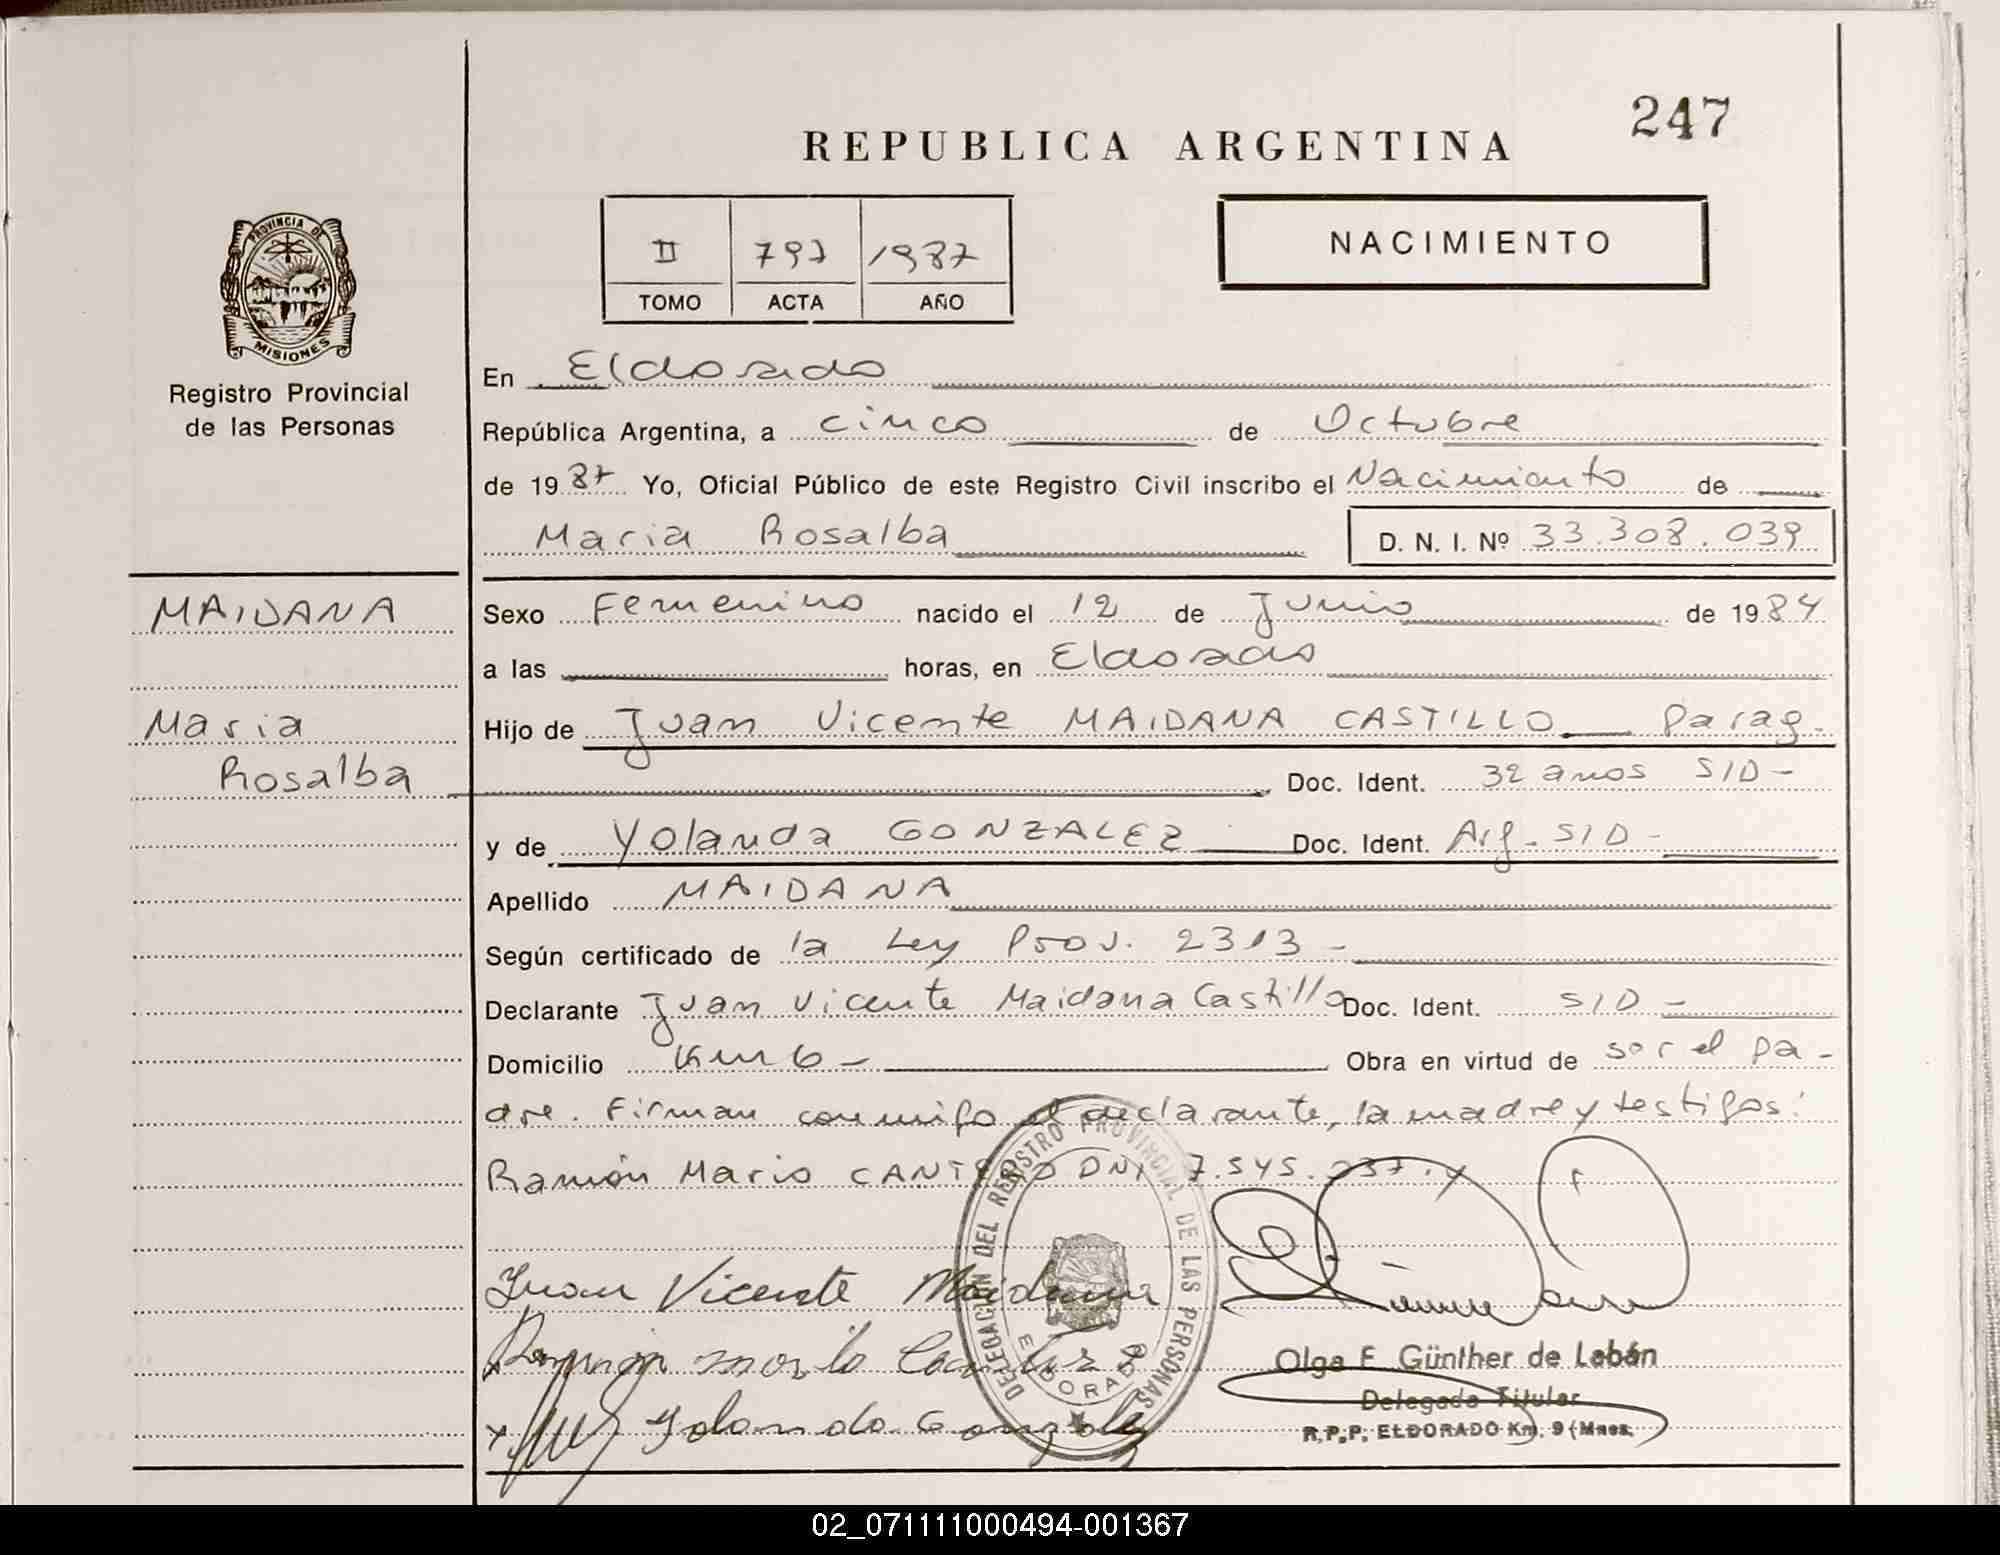 247
REPUBLICA ARGENTINA
PROVINCIA DE
MISIONES
Registro Provincial
de las Personas
II 797 1987
TOMO ACTA AÑO
NACIMIENTO
En Eldorado
República Argentina, a cinco de Octubre
de 1987 Yo, Oficial Público de este Registro Civil inscribo el Nacimiento de
Maria Rosalba D. N. I. Nº 33.308.039
MAIDANA
Maria
Rosalba
Sexo Femenino nacido el 12 de Junio de 1984
a las horas, en Eldorado
Hijo de Juan Vicente MAIDANA CASTILLO Parag.
Doc. Ident. 32 anos S/D-
y de Yolanda GONZALEZ Doc. Ident. Arg. S/D-
Apellido MAIDANA
Según certificado de la Ley Prov. 2313-
Declarante Juan Vicente Maidana Castillo Doc. Ident. S/D-
Domicilio Km 6- Obra en virtud de ser el pa-
dre. Firman conmigo el declarante, la madre y testigos:
Ramón Mario CANTERO DNI 7.545.237. y
Juan Vicente Maidana
Yolanda Gonzalez
DELEGACIÓN DEL REGISTRO PROVINCIAL DE LAS PERSONAS
ELDORADO
Olga E Günther de Labán
Delegada Titular
R.P.P. ELDORADO Km. 9 (Mnes.
02_071111000494-001367